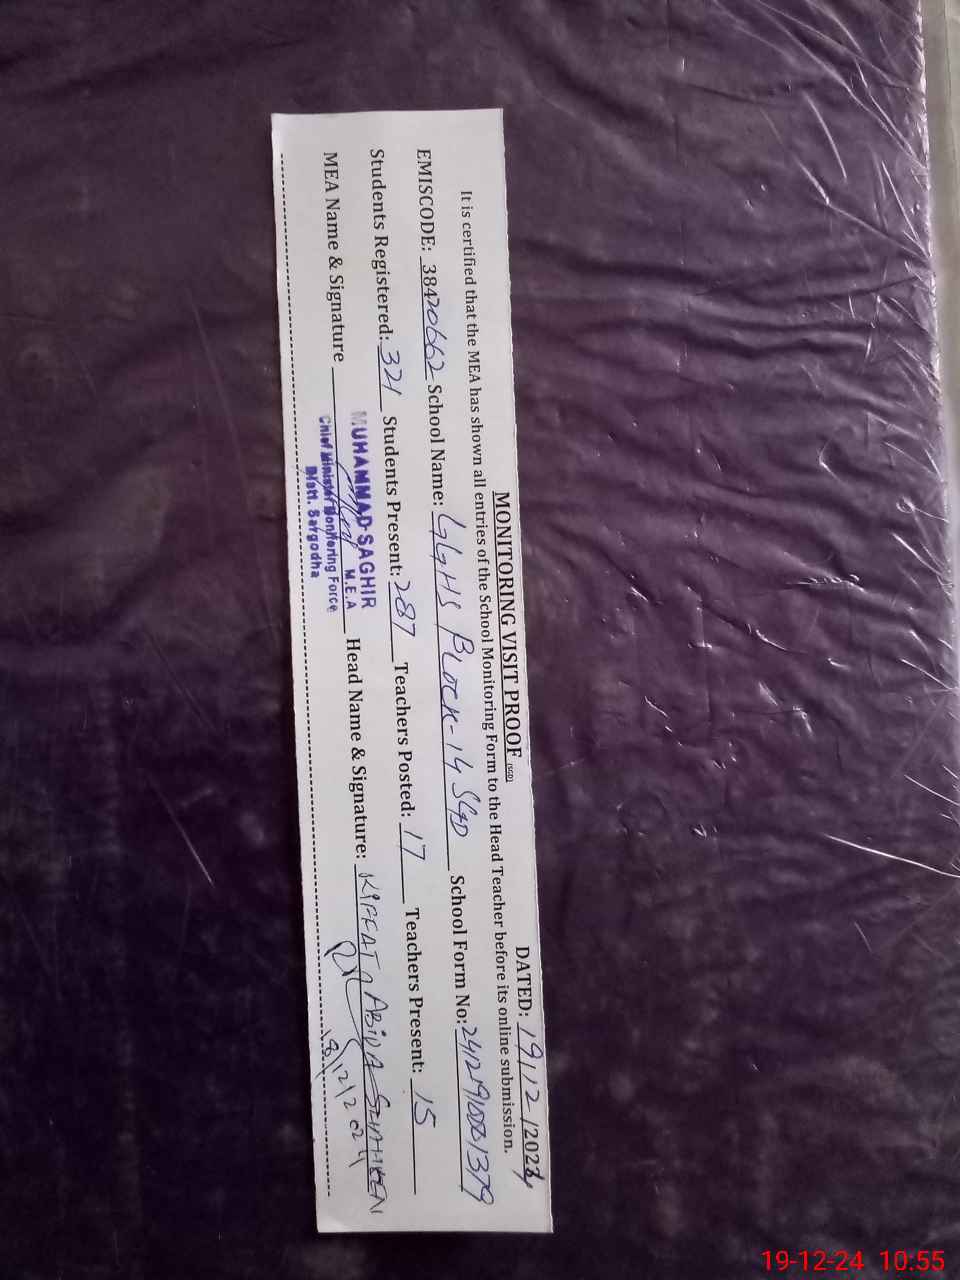 MONITORING VISIT PROOF (SGD)
DATED: 19/12/2024
It is certified that the MEA has shown all entries of the School Monitoring Form to the Head Teacher before its online submission.
EMISCODE: 38420662 School Name: GGHS BLOCK-14 SGD School Form No:
Students Registered: 321 Students Present: 287 Teachers Posted: 17 Teachers Present: 15
MEA Name & Signature Head Name & Signature: ABIDA SHAHEEN
MUHAMMAD SAGHIR
M.E.A
Chief Minister Monitoring Force
Distt. Sargodha
19-12-24 10:55